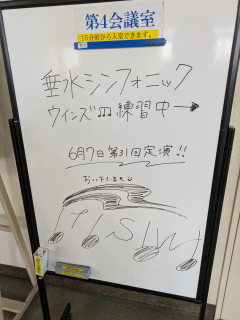 第4会議室
15分前から入室できます。
垂水シンフォニック
ウインズの練習中→
6月7日第31回定演!!